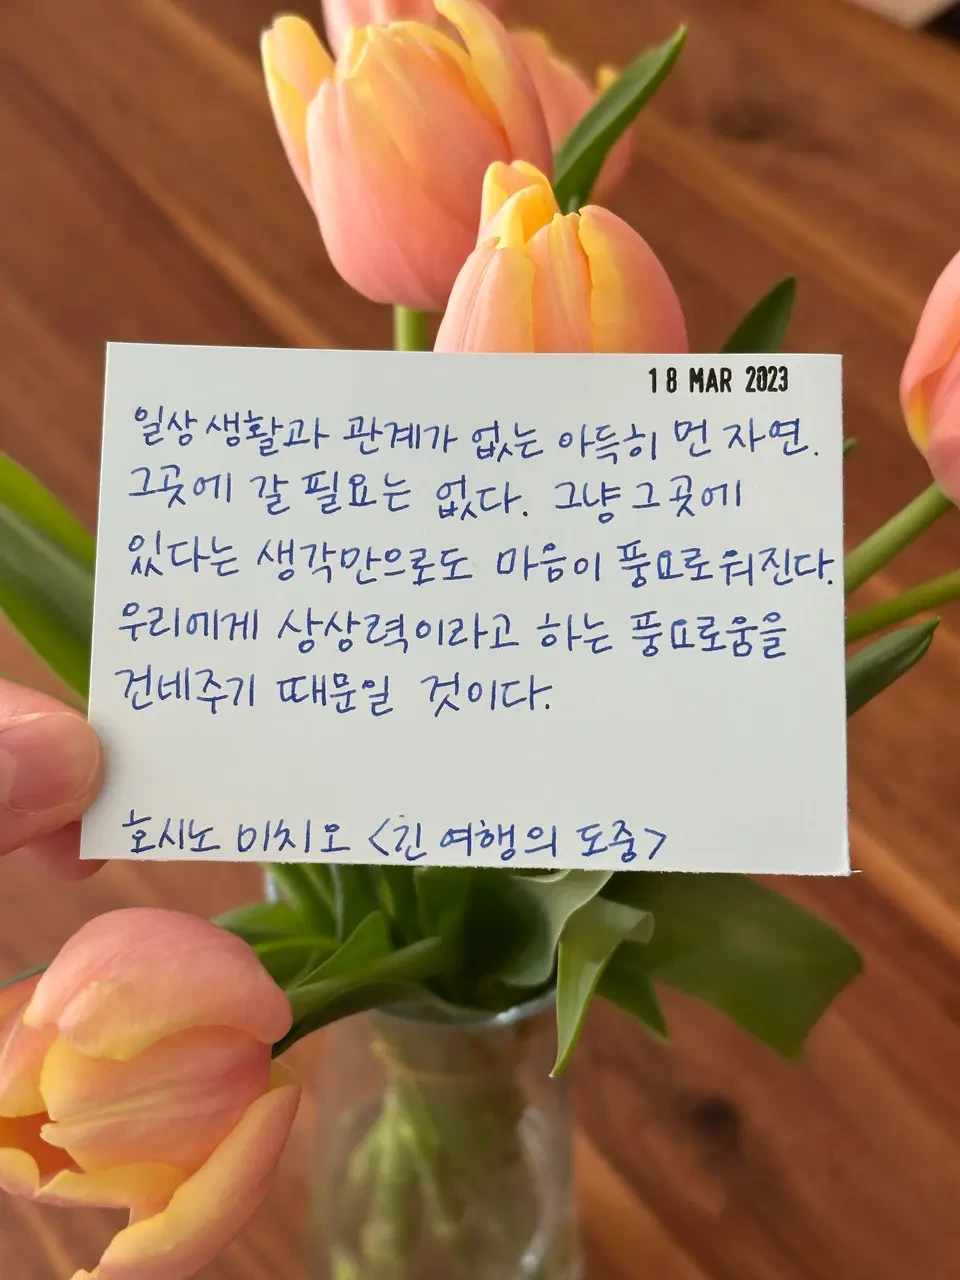 18 MAR 2023
일상 생활과 관계가 없는 아득히 먼 자연.
그곳에 갈 필요는 없다. 그냥 그곳에
있다는 생각만으로도 마음이 풍요로워진다.
우리에게 상상력이라고 하는 풍요로움을
건네주기 때문일 것이다.
호시노 미치오 <긴 여행의 도중>